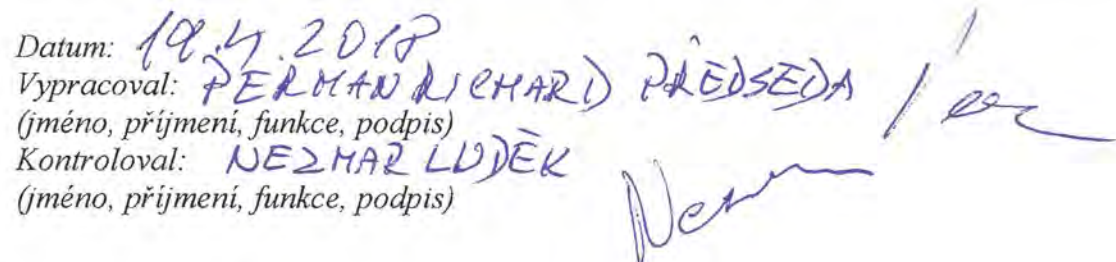 Datum: 19.4.2018
Vypracoval: PERMAN RICHARD PŘEDSEDA
(jméno, příjmení, funkce, podpis)
Kontroloval: NEZMAR LUDĚK
(jméno, příjmení, funkce, podpis)